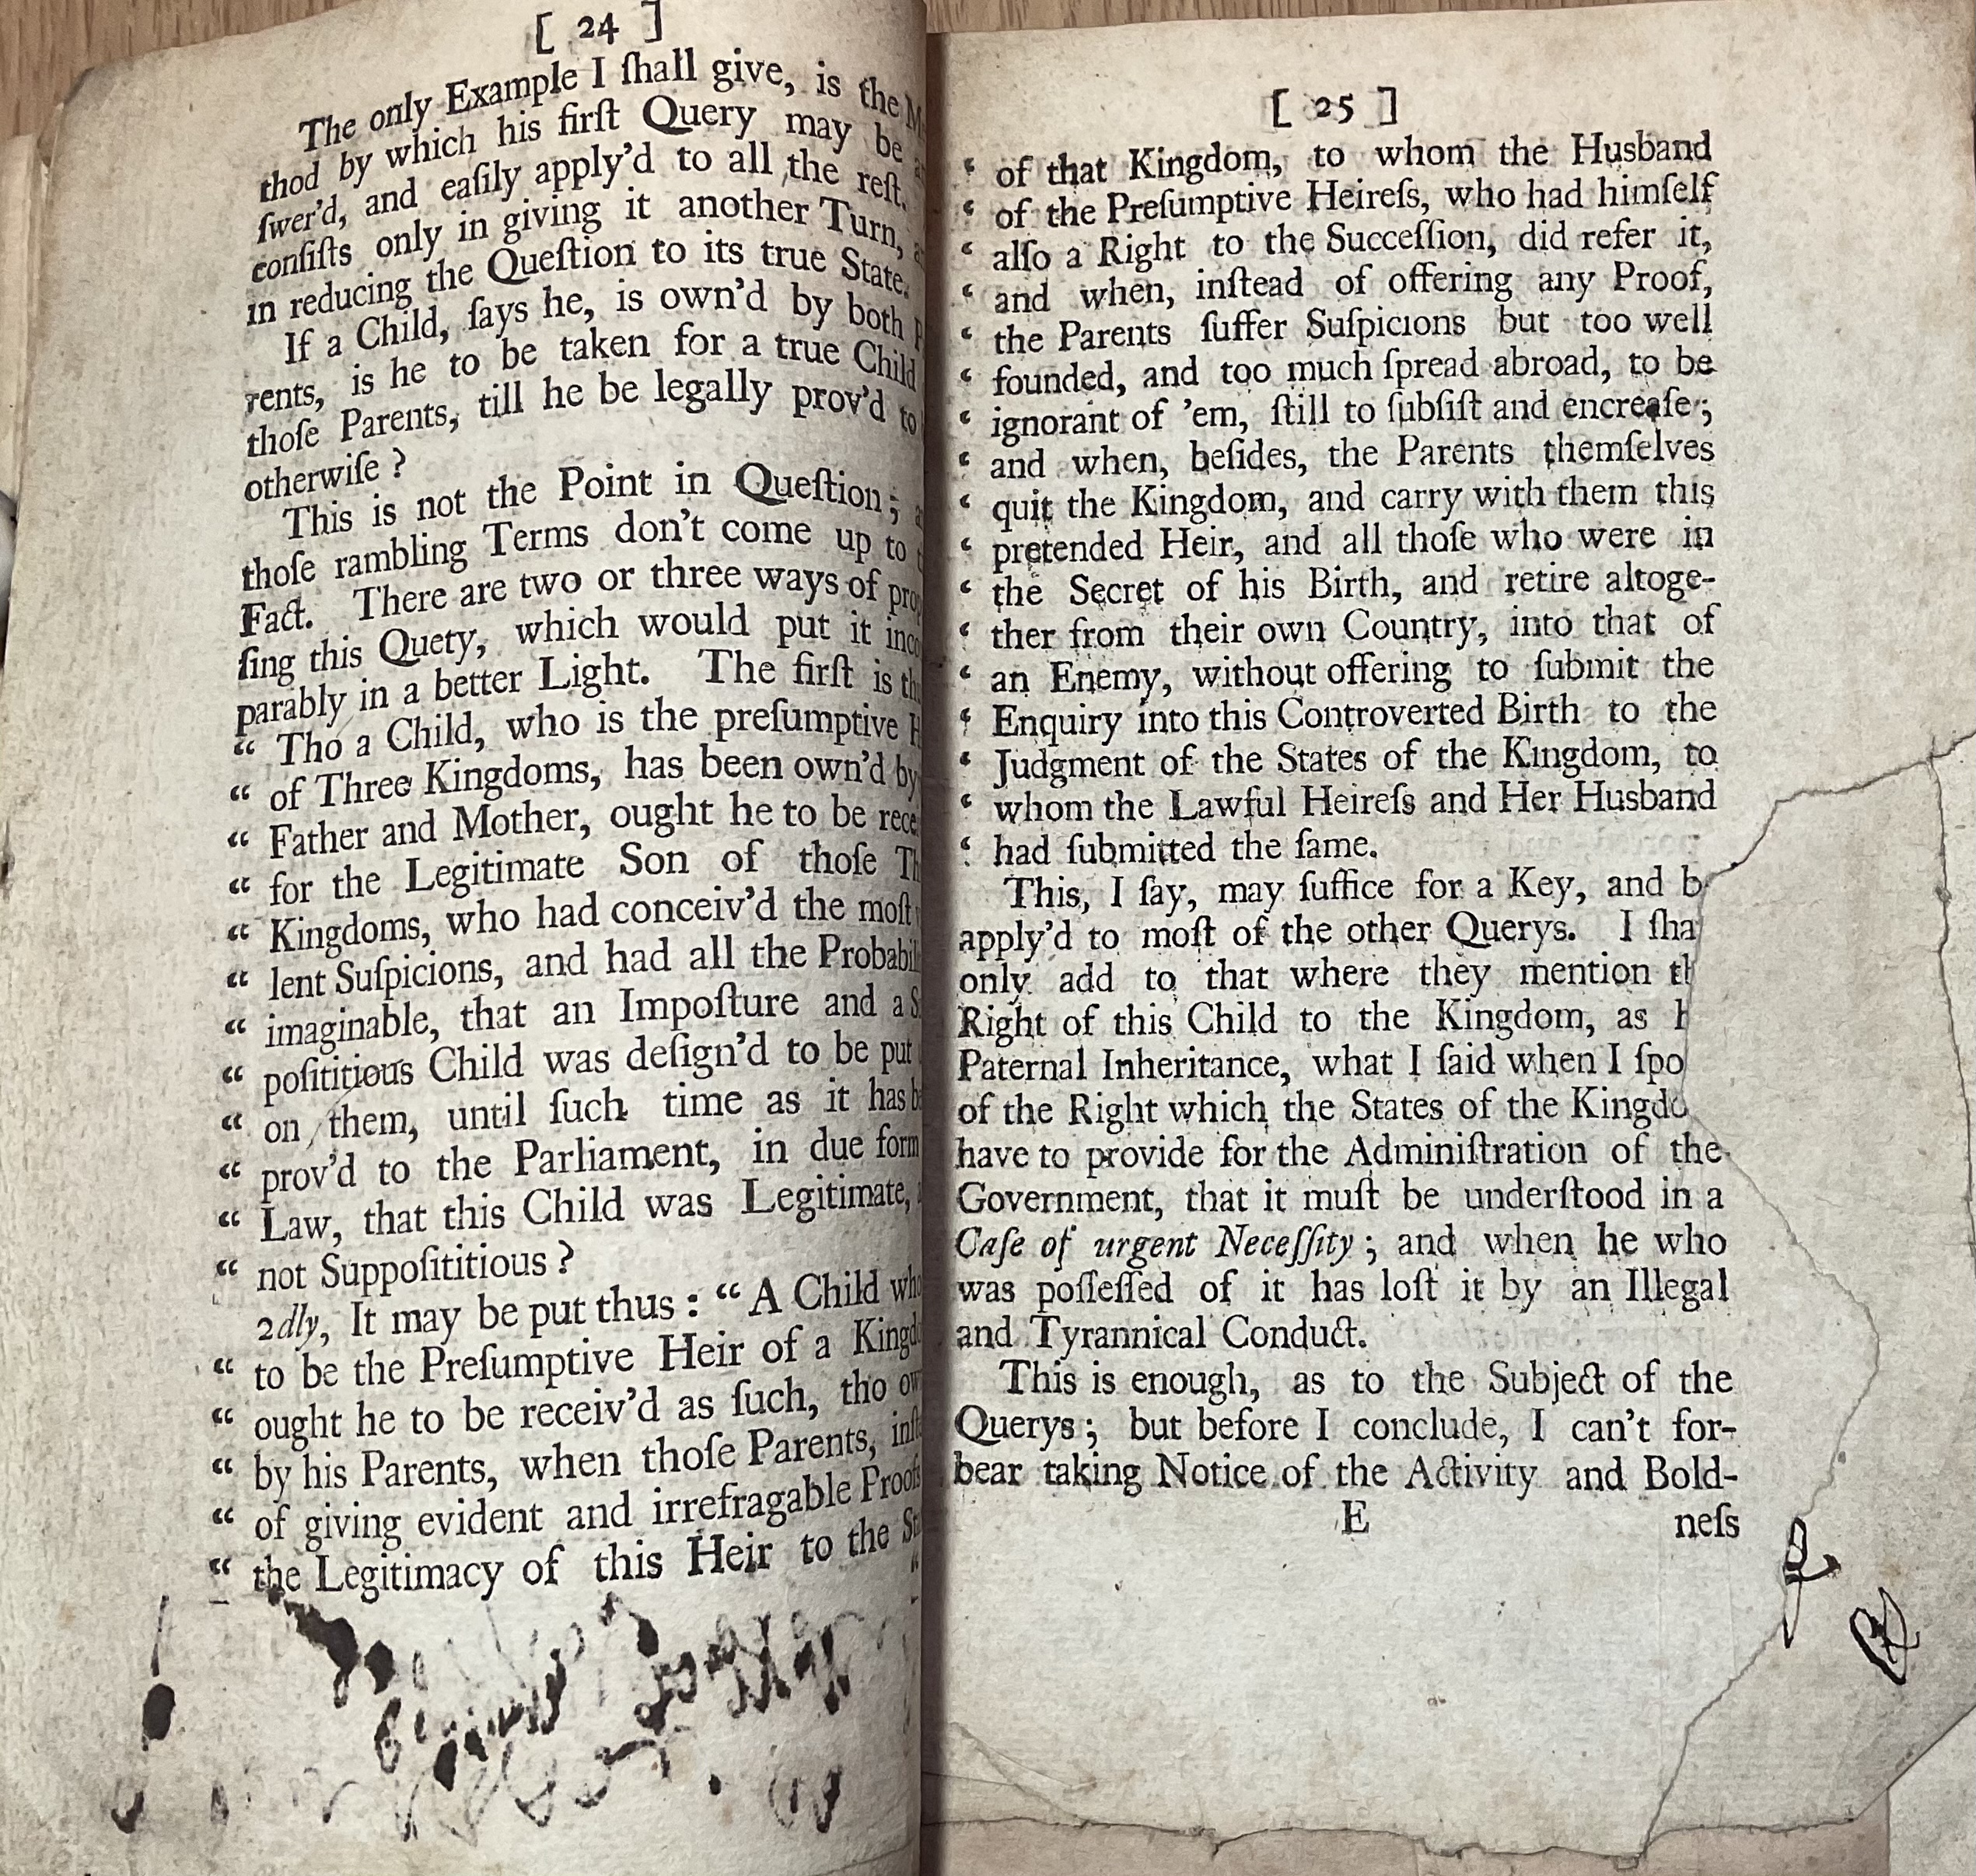 [ 24 ]
The only Example I ſhall give, is the
thod by which his firſt Query may be
ſwer'd, and eaſily apply'd to all the reſt.
conſiſts only in giving it another Turn,
in reducing the Queſtion to its true State.
If a Child, ſays he, is own'd by both
rents, is he to be taken for a true Child
thoſe Parents, till he be legally prov'd to
otherwiſe ?
This is not the Point in Queſtion;
thoſe rambling Terms don't come up to
Fact. There are two or three ways of
ſing this Quety, which would put it
parably in a better Light. The firſt is
“ Tho a Child, who is the preſumptive
“ of Three Kingdoms, has been own'd by
“ Father and Mother, ought he to be
“ for the Legitimate Son of thoſe
“ Kingdoms, who had conceiv'd the moſt
“ lent Suſpicions, and had all the
“ imaginable, that an Impoſture and a
“ poſititious Child was deſign'd to be put
“ on them, until ſuch time as it has
“ prov'd to the Parliament, in due form
“ Law, that this Child was Legitimate,
“ not Suppoſititious ?
2dly, It may be put thus : “ A Child
“ to be the Preſumptive Heir of a
“ ought he to be receiv'd as ſuch, tho
“ by his Parents, when thoſe Parents,
“ of giving evident and irrefragable Proofs
“ the Legitimacy of this Heir to the
[ 25 ]
‘ of that Kingdom, to whom the Husband
‘ of the Preſumptive Heireſs, who had himſelf
‘ alſo a Right to the Succeſſion, did refer it,
‘ and when, inſtead of offering any Proof,
‘ the Parents ſuffer Suſpicions but too well
‘ founded, and too much ſpread abroad, to be
‘ ignorant of 'em, ſtill to ſubſiſt and encreaſe;
‘ and when, beſides, the Parents themſelves
‘ quit the Kingdom, and carry with them this
‘ pretended Heir, and all thoſe who were in
‘ the Secret of his Birth, and retire altoge-
‘ ther from their own Country, into that of
‘ an Enemy, without offering to ſubmit the
‘ Enquiry into this Controverted Birth to the
‘ Judgment of the States of the Kingdom, to
‘ whom the Lawful Heireſs and Her Husband
‘ had ſubmitted the ſame.
This, I ſay, may ſuffice for a Key, and
apply'd to moſt of the other Querys. I
only add to that where they mention
Right of this Child to the Kingdom, as
Paternal Inheritance, what I ſaid when I
of the Right which the States of the
have to provide for the Adminiſtration of the
Government, that it muſt be underſtood in a
Caſe of urgent Neceſſity; and when he who
was poſſeſſed of it has loſt it by an Illegal
and Tyrannical Conduct.
This is enough, as to the Subject of the
Querys; but before I conclude, I can't for-
bear taking Notice of the Activity and Bold-
E neſs